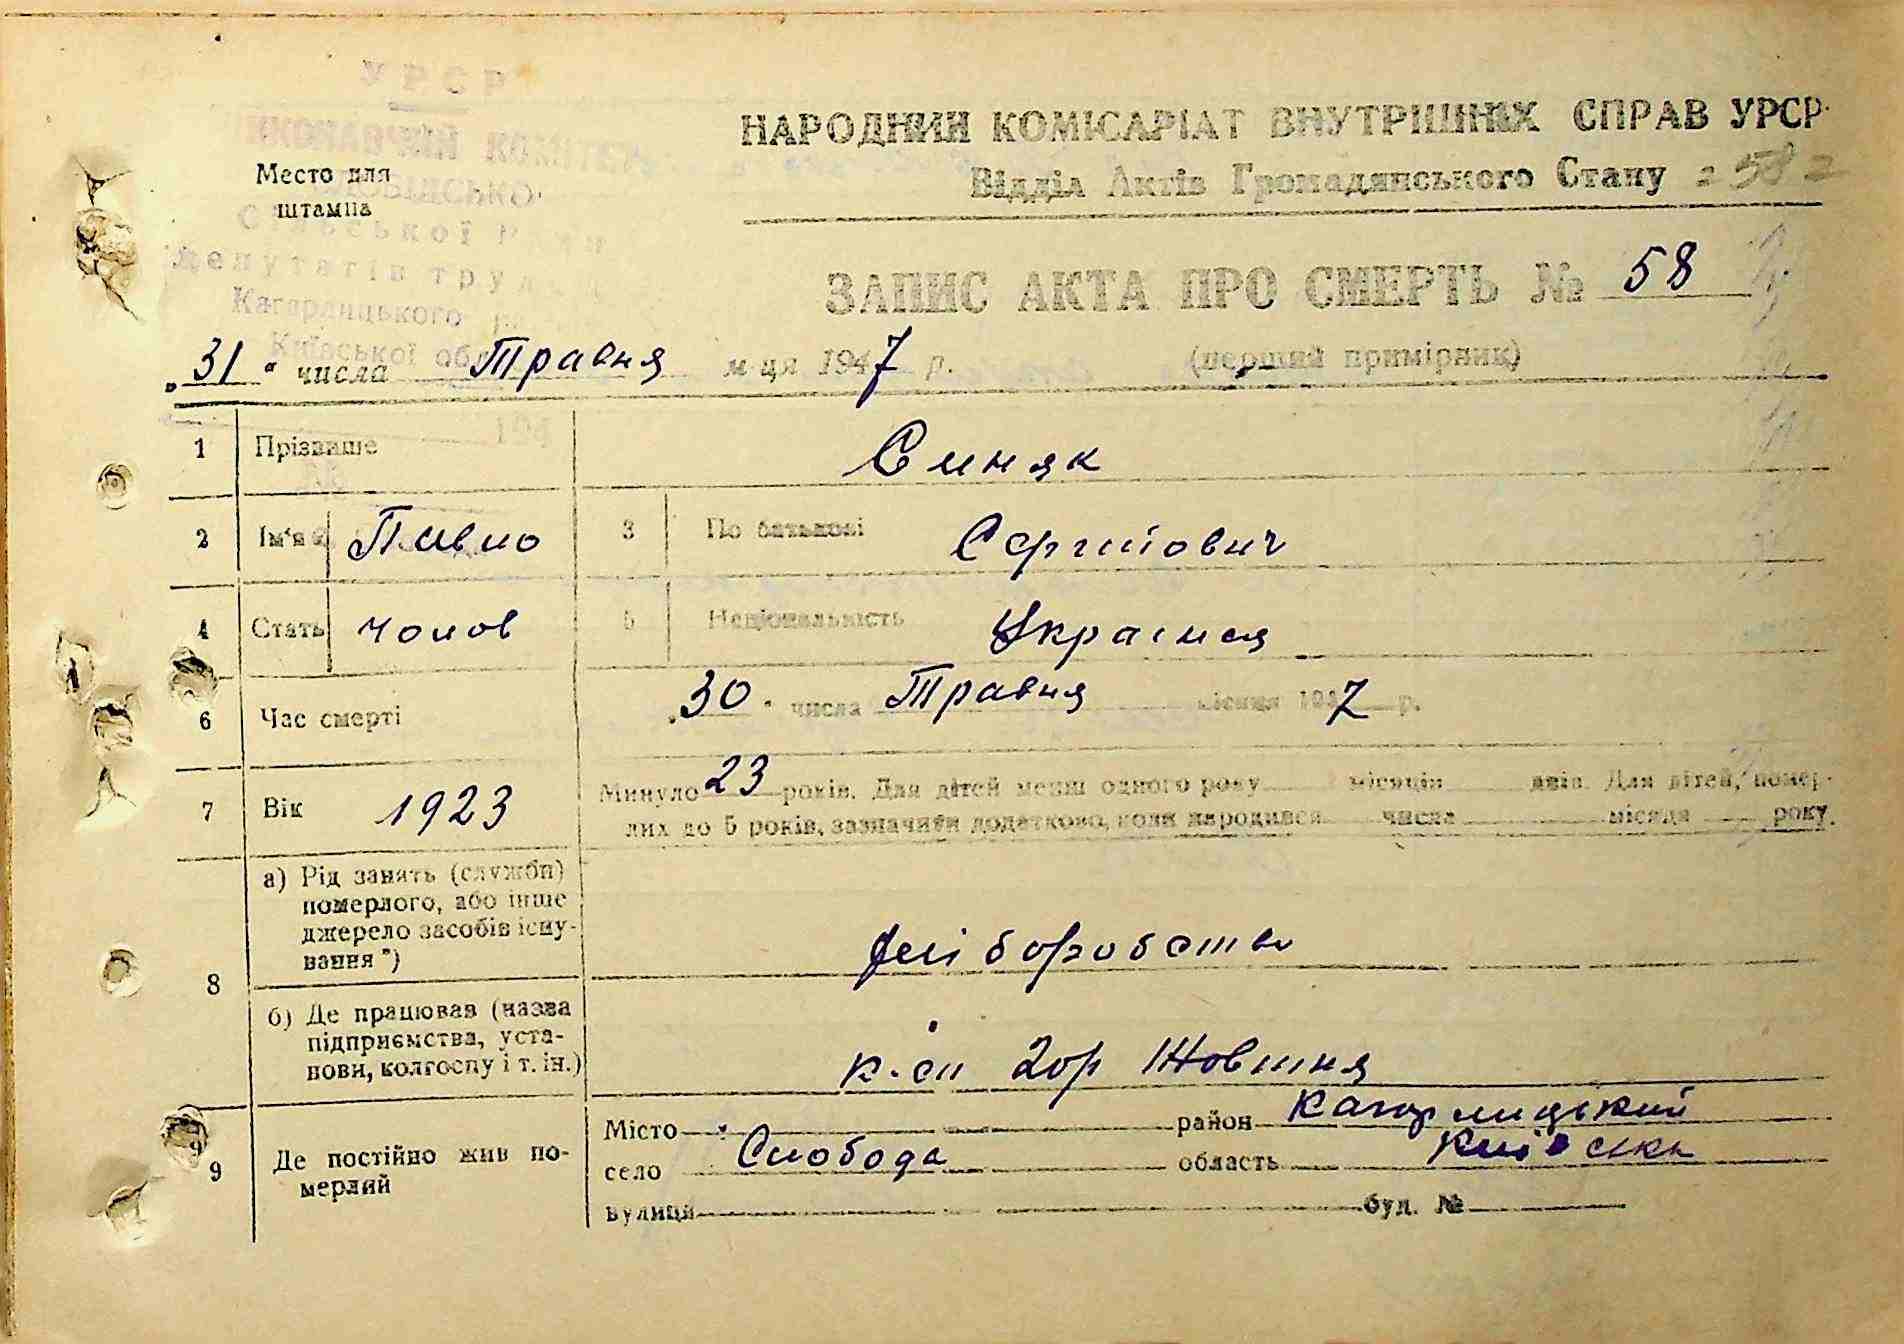 УРСР
ВИКОНАВЧИЙ КОМІТЕТ
Сільської
депутатів труд
Кагарлицького
Київської обл
Место для
штампа
НАРОДНИЙ КОМІСАРІАТ ВНУТРІШНІХ СПРАВ УРСР
Відділ Актів Громадянського Стану
ЗАПИС АКТА ПРО СМЕРТЬ № 58
„31“ числа Травня м-ця 1947 р. (перший примірник)
194
№
1 Прізвище Синяк
2 Ім'я Павло 3 По батькові Сергійович
4 Стать чолов 5 Національність Українся
6 Час смерті „30“ числа Травня місяця 1947 р.
7 Вік 1923 Минуло 23 років. Для дітей менш одного року місяців днів. Для дітей, помер-
лих до 5 років, зазначити додатково, коли народився числа місяця року.
8 а) Рід занять (служби)
померлого, або інше
джерело засобів існу-
вання*)
хліборобства
б) Де працював (назва
підприємства, уста-
нови, колгоспу і т. ін.)
к-сп Зор Жовтня
9 Де постійно жив по-
мерлий
Місто район Кагорлицький
село Слобода область Київська
вулиця буд. №